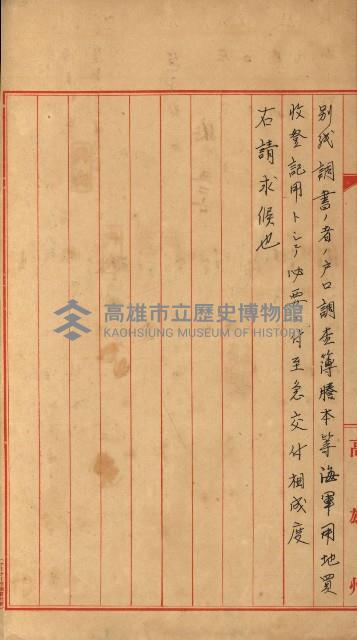 別紙調書ノ者ノ戸口調査簿謄本等海軍用地買
收登記用トシテ必要ニ付至急交付相成度
右請求候也
高雄州
高雄市立歷史博物館
KAOHSIUNG MUSEUM OF HISTORY